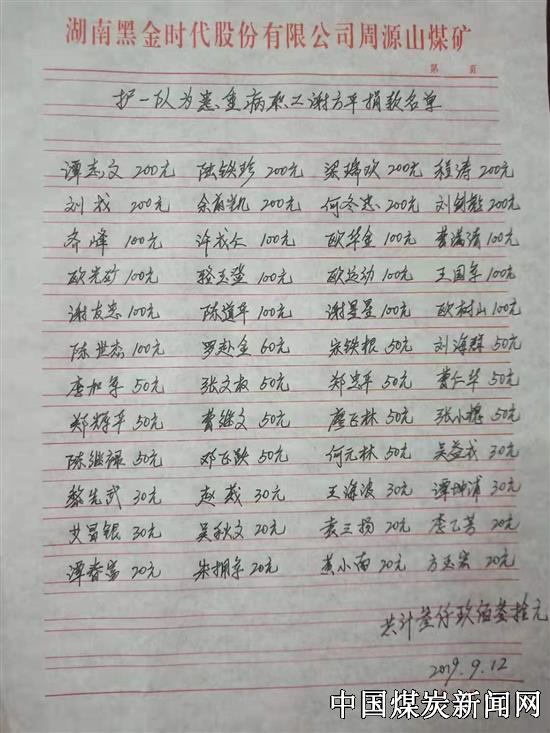 湖南黑金时代股份有限公司周源山煤矿
第 页
护一队为患重病职工谢方平捐款名单
谭志文 200元 陆铁珍 200元 梁瑞欢 200元 程涛 200元
刘成 200元 余首凯 200元 何冬忠 200元 刘剑彪 200元
齐峰 100元 许成仁 100元 欧华金 100元 黄满清 100元
欧光矿 100元 骆玉盛 100元 欧运动 100元 王国军 100元
谢友忠 100元 陈道华 100元 谢星星 100元 欧树山 100元
陈世杰 100元 罗赴金 60元 宋铁根 50元 刘海群 50元
唐加军 50元 张文叔 50元 郑忠平 50元 黄仁华 50元
郑辉平 50元 黄继文 50元 廖飞林 50元 张小穆 50元
陈继禄 50元 邓飞跃 50元 何元林 50元 吴益成 30元
黎先武 30元 赵成 30元 王海波 30元 谭坤清 30元
艾昌银 30元 吴秋文 20元 袁三扬 20元 李乙芳 20元
谭春笛 20元 朱拥军 20元 黄小南 20元 方玉宏 20元
共计叁仟玖佰叁拾元
2019.9.12
中国煤炭新闻网